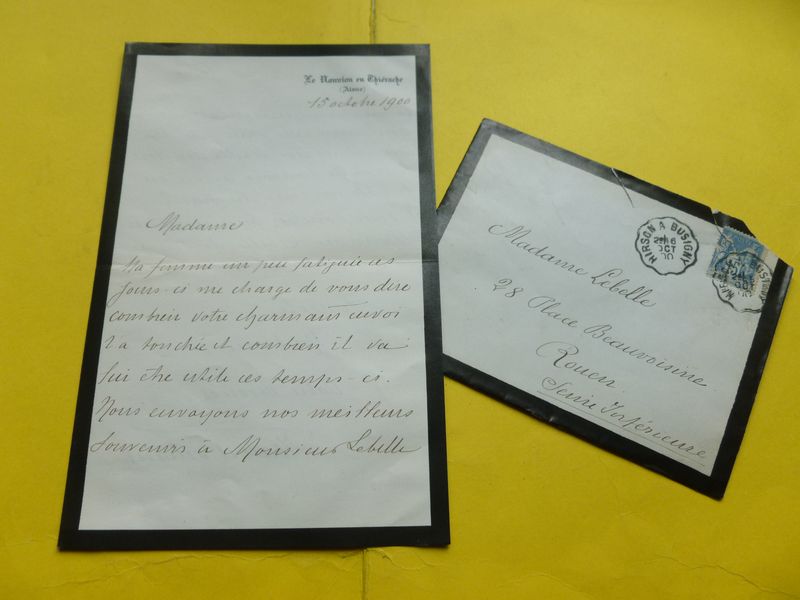 Le Nouvion en Thiérache
(Aisne)
15 octobre 1900
Madame
Ma femme un peu fatiguée ces
jours-ci me charge de vous dire
combien votre charmant envoi
l'a touchée et combien il va
lui être utile ces temps-ci.
Nous envoyons nos meilleurs
souvenirs à Monsieur Lebelle
HIRSON A BUSIGNY
OCT
00
Madame Lebelle
28 Place Beauvoisine
Rouen
Seine Inférieure